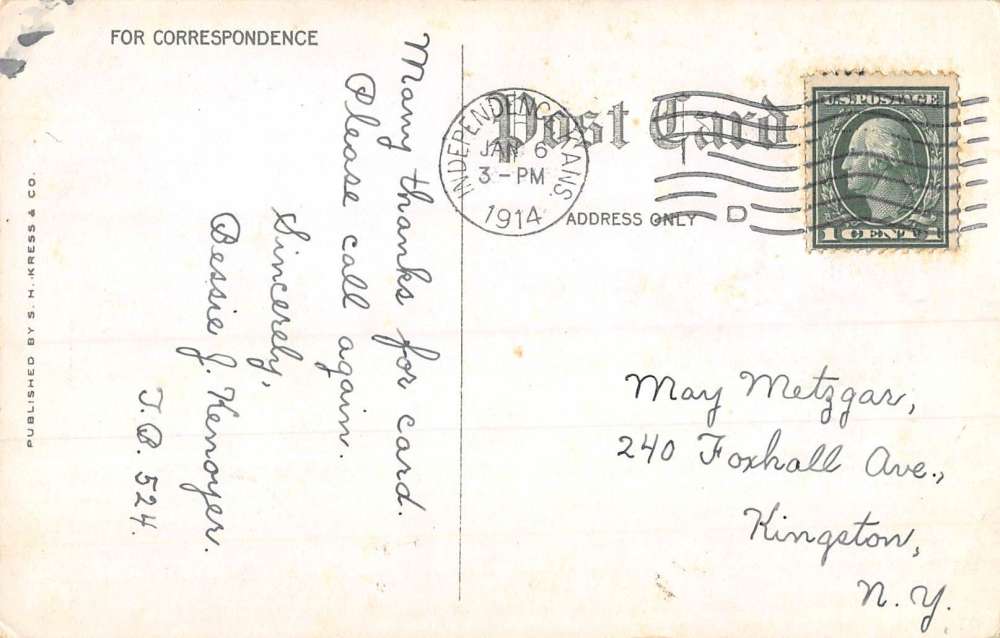 FOR CORRESPONDENCE
Many thanks for card.
Please call again.
Sincerely,
Bessie J. Kemoyer.
T.P. 524.
PUBLISHED BY S. H. KRESS & CO.
Post Card
ADDRESS ONLY
INDEPENDENCE, KANS.
JAN 6
3-PM
1914
D
U.S. POSTAGE
1 CENT 1
May Metzgar,
240 Foxhall Ave.,
Kingston,
N. Y.